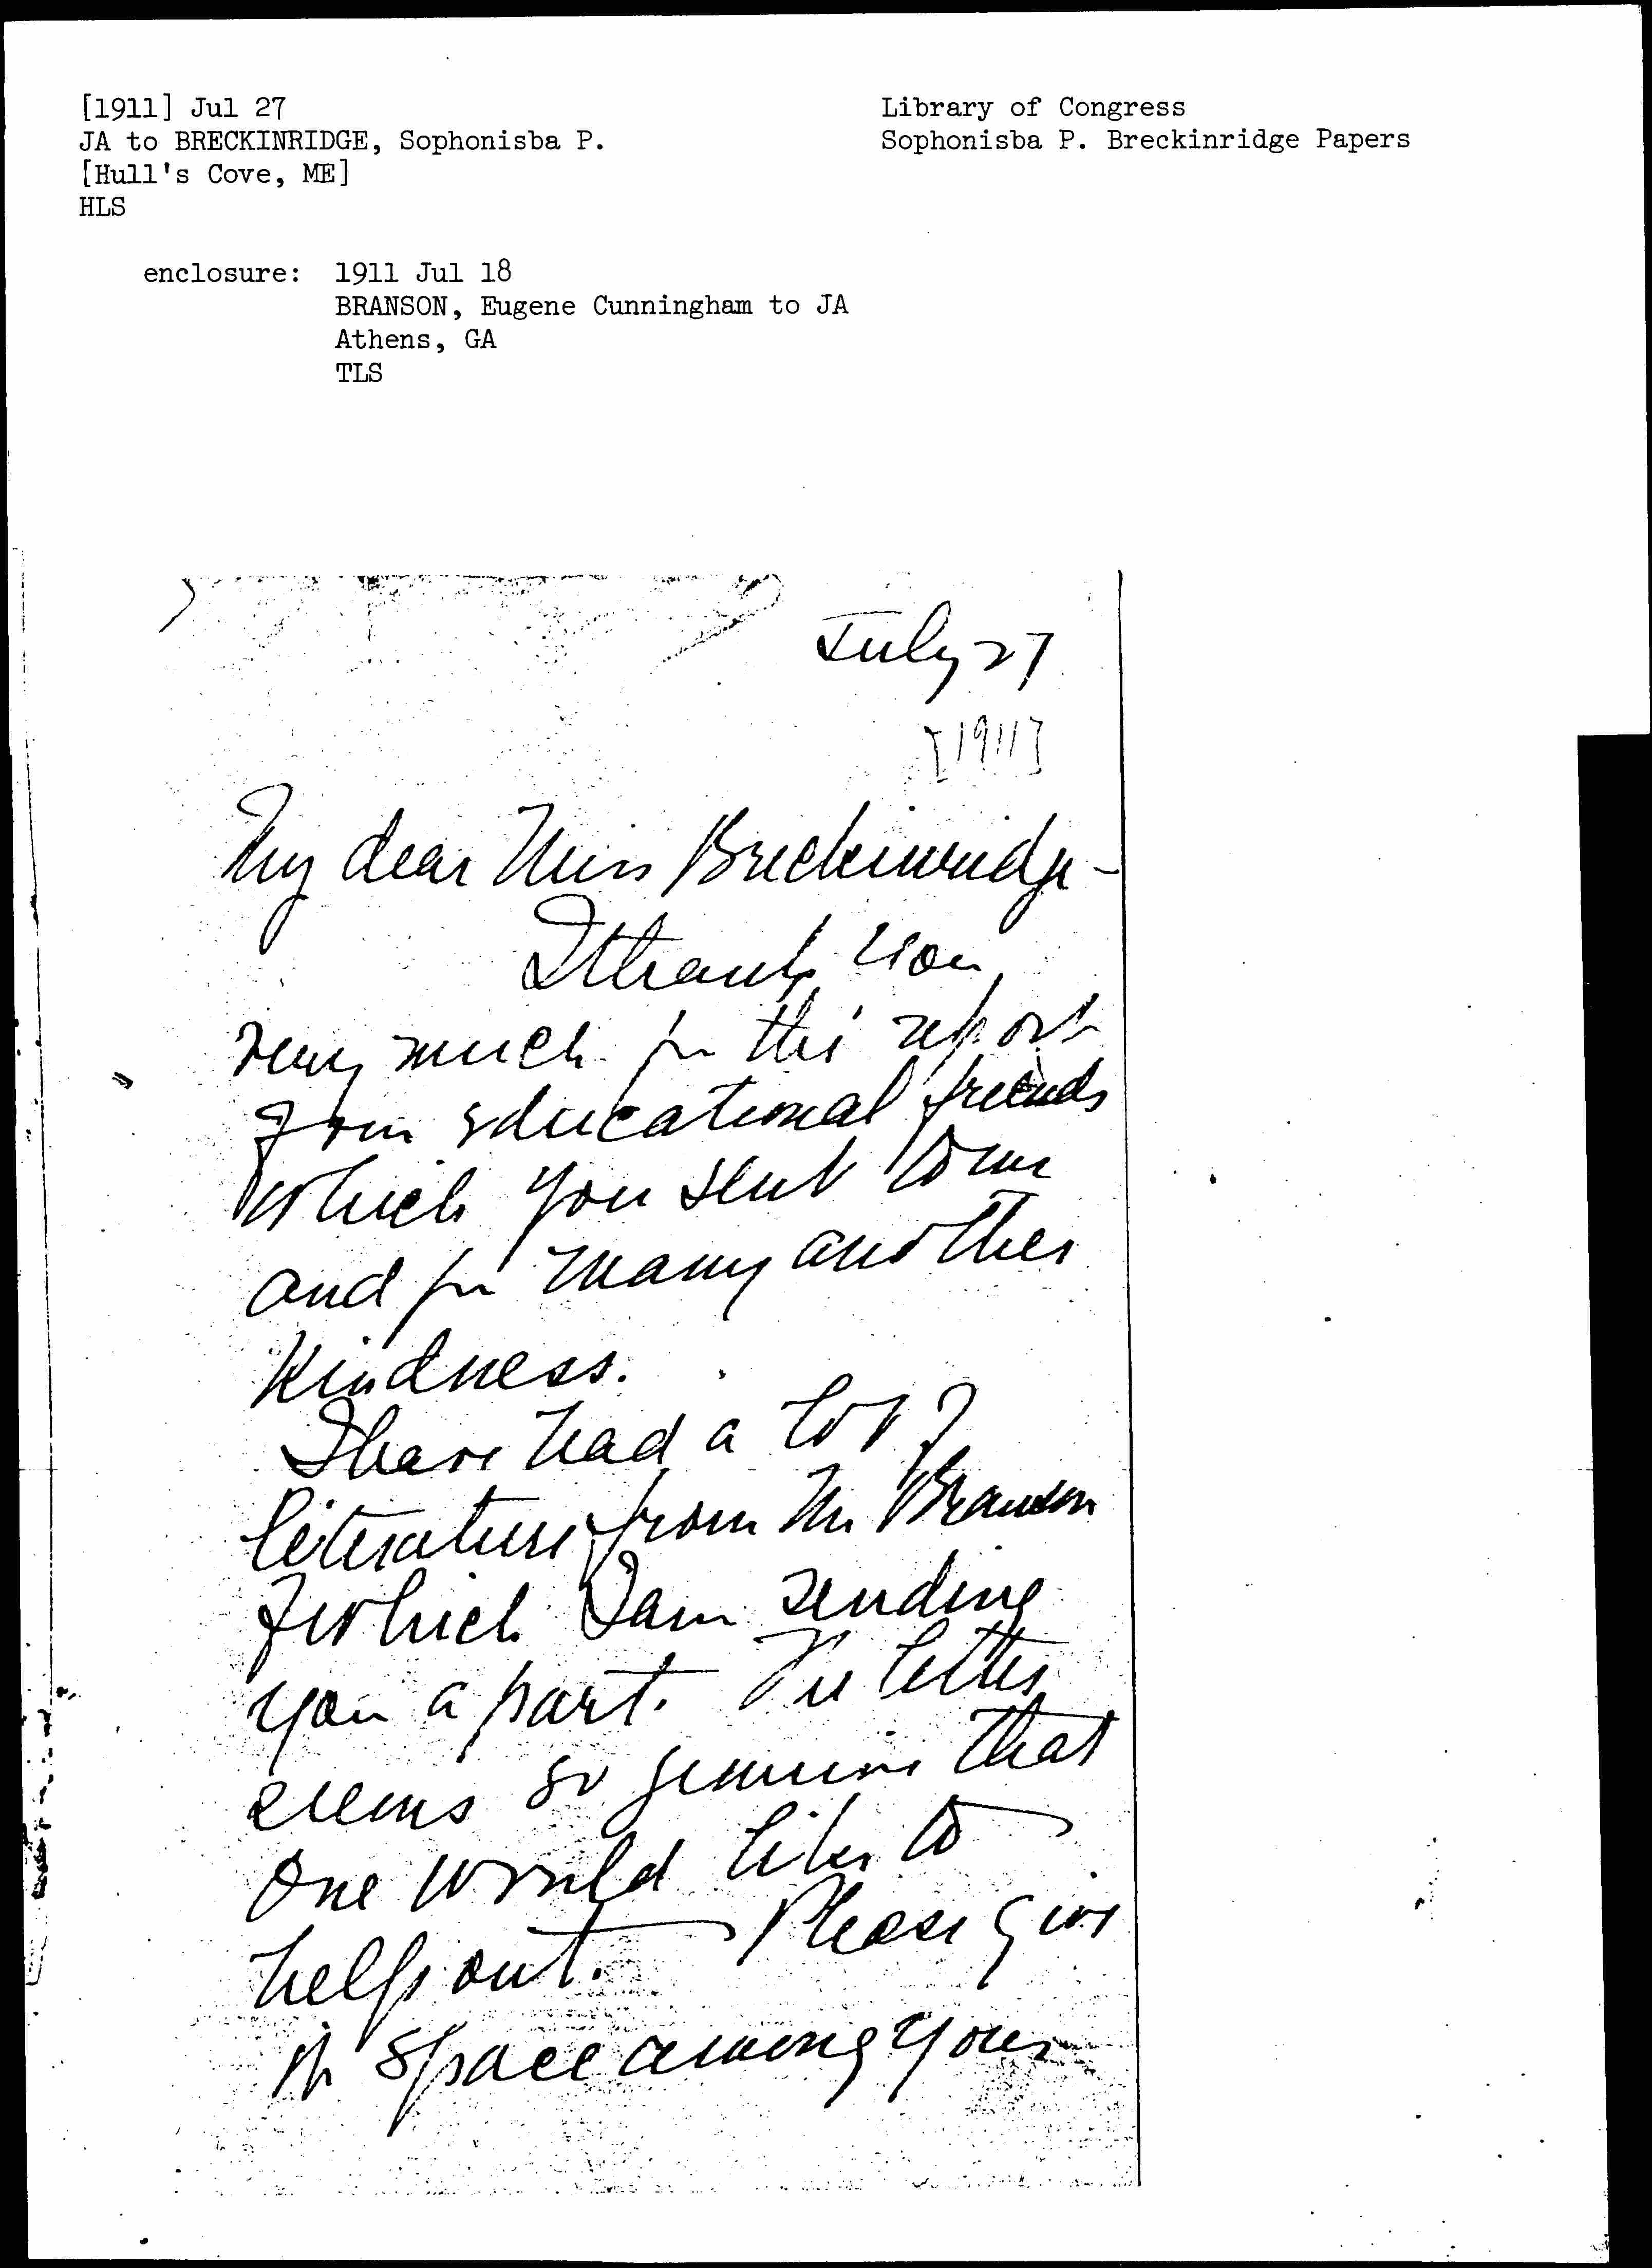 [1911] Jul 27
JA to BRECKINRIDGE, Sophonisba P.
[Hull's Cove, ME]
HLS
Library of Congress
Sophonisba P. Breckinridge Papers
enclosure: 1911 Jul 18
BRANSON, Eugene Cunningham to JA
Athens, GA
TLS
July 27
[1911]
My dear Miss Breckinridge -
I thank you
very much for the report
from educational friends
which you sent to me
and for many another
kindness.
I have had a lot of
literature from Mr Branson
of which I am sending
you a part. The letter
seems so genuine that
one would like to
help out. Please give
space among your